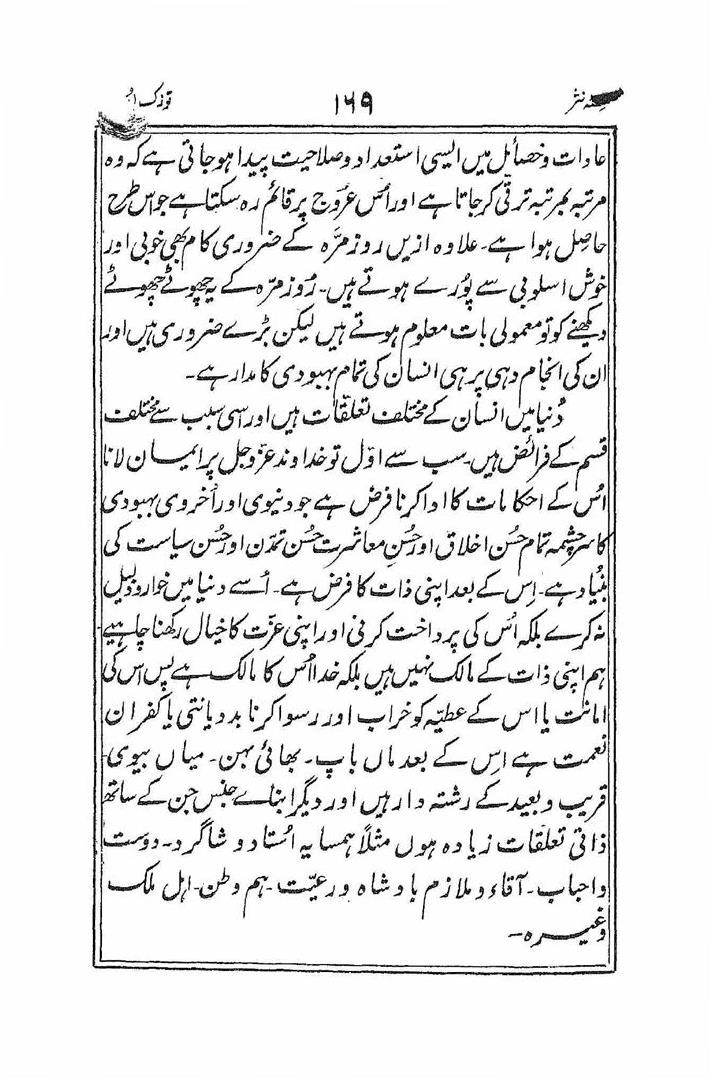 نثر ۱۶۹ توزک
عادات و خصائل میں ایسی استعداد و صلاحیت پیدا ہو جاتی ہے کہ وہ
مرتبہ بمرتبہ ترقی کر جاتا ہے اور اُس عروج پر قائم رہ سکتا ہے جو اس طرح
حاصل ہوا ہے۔ علاوہ ازیں روز مرّہ کے ضروری کام بھی خوبی اور
خوش اسلوبی سے پُورے ہوتے ہیں۔ رُوز مرّہ کے یہ چھوٹے چھوٹے
دیکھنے کو تو معمولی بات معلوم ہوتے ہیں لیکن بڑے ضروری ہیں اور
ان کی انجام دہی پر ہی انسان کی تمام بہبودی کا مدار ہے۔
دُنیا میں انسان کے مختلف تعلقات ہیں اور اسی سبب سے مختلف
قسم کے فرائض ہیں۔ سب سے اوّل تو خداوند عزّوجل پر ایمان لانا
اُس کے احکامات کا ادا کرنا فرض ہے جو دنیوی اور اُخروی بہبودی
کا سرچشمہ تمام حُسن اخلاق اور حُسنِ معاشرت حُسن تمدّن اور حُسن سیاست کی
بنُیاد ہے۔ اِس کے بعد اپنی ذات کا فرض ہے۔ اُسے دنیا میں خوار و ذلیل
نہ کرے بلکہ اُس کی پرداخت کرنی اور اپنی عزّت کا خیال رکھنا چاہیے
ہم اپنی ذات کے مالک نہیں ہیں بلکہ خدا اُس کا مالک ہے پس اس کی
امانت یا اس کے عطیّہ کو خراب اور رسوا کرنا بددیانتی یا کفران
نعمت ہے اِس کے بعد ماں باپ۔ بھائی بہن۔ میاں بیوی۔
قریب و بعید کے رشتہ دار ہیں اور دیگر ابنائے جنس جن کے ساتھ
ذاتی تعلقات زیادہ ہوں مثلاً ہمسایہ اُستاد و شاگرد۔ دوست
و احباب۔ آقاء و ملازم بادشاہ و رعیّت۔ ہم وطن۔ اہل ملک
وغیرہ۔